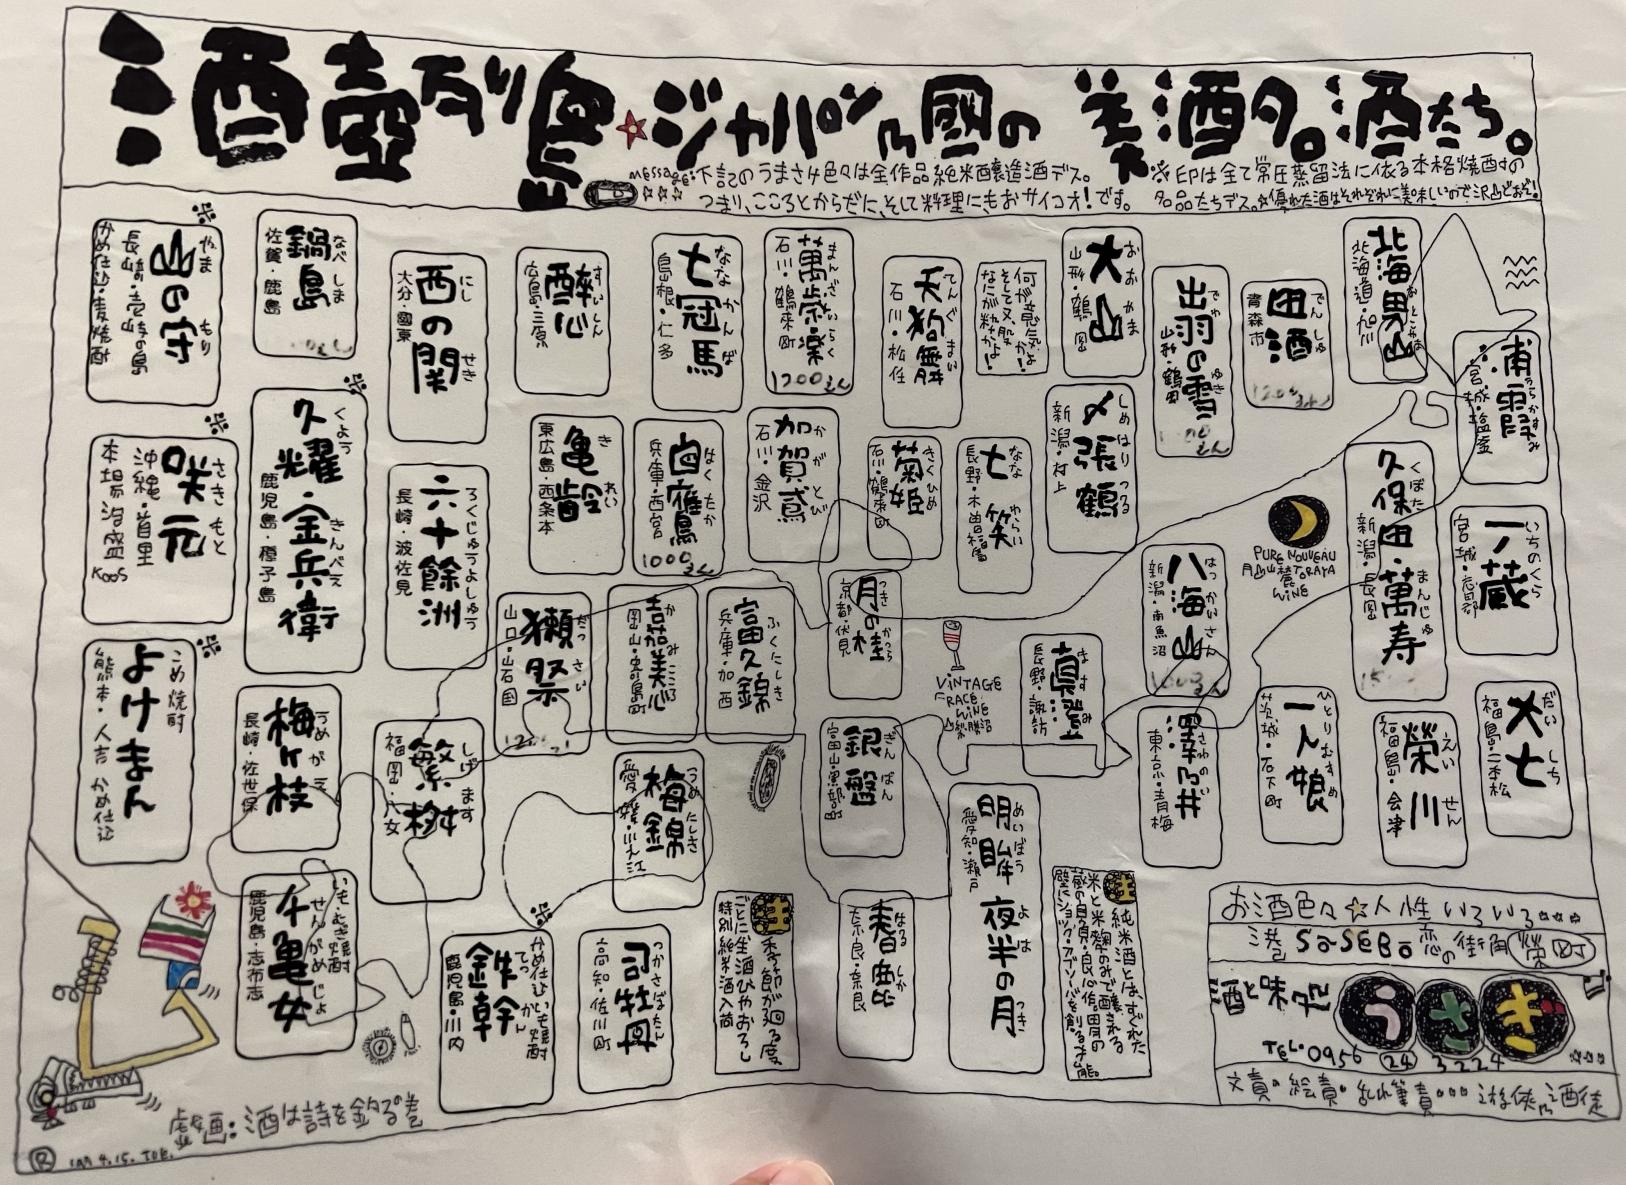 酒壺列島☆ジャパン乃國の美酒名酒たち。
message:下記のうまさけ色々は全作品純米醸造酒デス。
☆☆☆ つまり、こころとからだに、そして料理にもおサイコオ!です。
※EPは全て常圧蒸留法に依る本格焼酎の
名品たちデス。☆優れた酒はそれぞれに美味しいので沢山どおぞ!
北海男山 おとこやま
北海道・旭川
浦霞 うらかすみ
宮城・塩釜
田酒 でんしゅ
青森市
出羽の雪 でわ ゆき
山形・鶴岡
大山 おおやま
山形・鶴岡
何が意気か!
そして又、股
なにが粋なかよ!
天狗舞 てんぐまい
石川・松任
萬歳楽 まんざいらく
石川・鶴来町
1200えん
七冠馬 ななかんば
島根・仁多
醉心 すいしん
広島・三原
西の関 にし せき
大分・國東
鍋島 なべしま
佐賀・鹿島
※
山の守 やま もり
長崎・壱岐の島
かめ仕込・麦焼酎
一ノ蔵 いちのくら
宮城・志田郡
久保田・萬寿 くぼた まんじゅ
新潟・長岡
PURE NOUVEAU
月山山麓 TORAYA
WINE
〆張鶴 しめはりつる
新潟・村上
七笑 ななわらい
長野・木曽福島
菊姫 きくひめ
石川・鶴来町
加賀鳶 かがとび
石川・金沢
白鷹 はくたか
兵庫・西宮
1000えん
亀齢 きれい
東広島・西条本
六十餘洲 ろくじゅうよしゅう
長崎・波佐見
※
久耀・金兵衛 くよう きんべえ
鹿児島・種子島
※
咲元 さきもと
沖縄・首里
本場泡盛
八海山 はっかいさん
新潟・南魚沼
真澄 ますみ
長野・諏訪
月の桂 つき かつら
京都・伏見
VINTAGE
WINE
富久錦 ふくにしき
兵庫・加西
嘉美心 かみこころ
岡山・寄島町
獺祭 だっさい
山口・岩国
大七 だいしち
福島・二本松
榮川 えいせん
福島・会津
一人娘 ひとりむすめ
茨城・石下町
澤乃井 さわのい
東京・青梅
明眸 夜半の月 めいぼう よは つき
愛知・瀬戸
銀盤 ぎんばん
富山・
梅錦 うめにしき
愛媛・川之江
繁桝 しげます
福岡・八女
梅ヶ枝 うめがえ
長崎・佐世保
※
こめ焼酎
よけまん
熊本・人吉 かめ仕込
注 純米酒とは、すぐれた
米と米麹のみで醸される
春鹿 はるしか
奈良・奈良
注 季節が廻る度
ごとに生酒ひやおろし
特別純米酒入荷
司牡丹 つかさぼたん
高知・佐川町
※
かめ仕込いも焼酎
鉄幹 てっかん
鹿児島・川内
いも・むぎ焼酎
千亀女 せんがめじょ
鹿児島・志布志
お酒色々☆人性いろいろ
港 SaSEBo 恋の街角 榮町
酒と味処 うさぎ
TEL・0956 24 3224
文責・絵責・乱れ筆責・・・遊侠乃酒徒
戯画:酒は詩を釣る巻
Ⓡ 4.15. TUE.